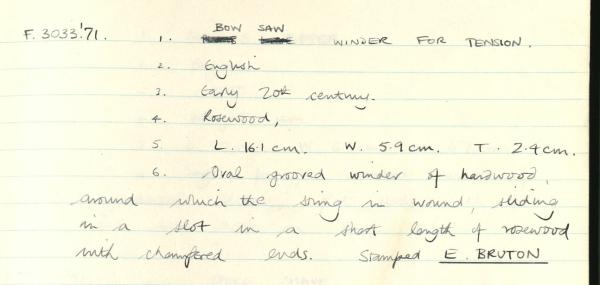 BOW SAW
F.3033.'71. 1. WINDER FOR TENSION.
2. English
3. Early 20th century.
4. Rosewood,
5 L. 16.1 cm. W. 5.9 cm. T. 2.4 cm.
6. Oval grooved winder of hardwood,
around which the string is wound, sliding
in a slot in a short length of rosewood
with chamfered ends. Stamped E. BRUTON